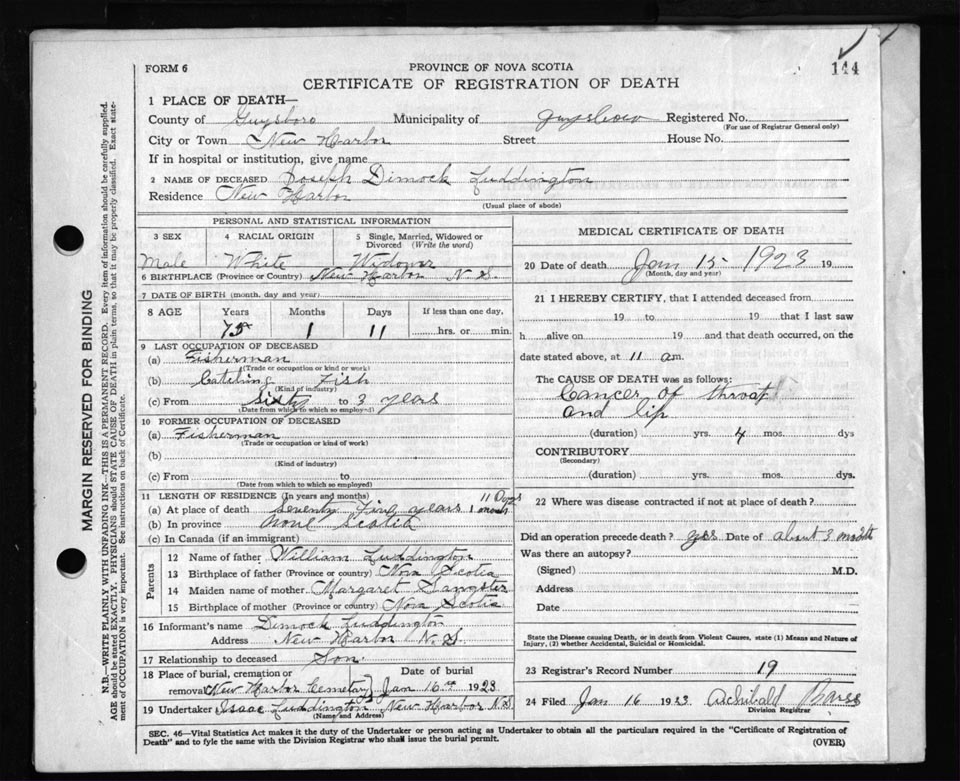 144
FORM 6
PROVINCE OF NOVA SCOTIA
CERTIFICATE OF REGISTRATION OF DEATH
1 PLACE OF DEATH—
County of Guysboro Municipality of Guysboro Registered No.
(For use of Registrar General only)
City or Town New Harbor Street House No.
If in hospital or institution, give name
2 NAME OF DECEASED Joseph Dimock Luddington
Residence New Harbor
(Usual place of abode)
PERSONAL AND STATISTICAL INFORMATION
3 SEX 4 RACIAL ORIGIN 5 Single, Married, Widowed or Divorced (Write the word)
Male White Widower
6 BIRTHPLACE (Province or Country) New Harbor N.S.
7 DATE OF BIRTH (month, day and year)
8 AGE Years Months Days If less than one day,
75 1 11 hrs. or min.
9 LAST OCCUPATION OF DECEASED
(a) Fisherman
(Trade or occupation or kind of work)
(b) Catching Fish
(Kind of industry)
(c) From Sixty to 3 years
(Date from which to which so employed)
10 FORMER OCCUPATION OF DECEASED
(a) Fisherman
(Trade or occupation or kind of work)
(b)
(Kind of industry)
(c) From to
(Date from which to which so employed)
11 LENGTH OF RESIDENCE (In years and months) 11 Days
(a) At place of death Seventy Five years 1 month
(b) In province Nova Scotia
(c) In Canada (if an immigrant)
Parents
12 Name of father William Luddington
13 Birthplace of father (Province or country) Nova Scotia
14 Maiden name of mother Margaret Sangster
15 Birthplace of mother (Province or country) Nova Scotia
16 Informant's name Dimock Luddington
Address New Harbor N.S.
17 Relationship to deceased Son
18 Place of burial, cremation or Date of burial
removal New Harbor Cemetary Jan 16th 1923
19 Undertaker Isaac Luddington New Harbor N.S.
(Name and Address)
MEDICAL CERTIFICATE OF DEATH
20 Date of death Jan 15 1923 19
(Month, day and year)
21 I HEREBY CERTIFY, that I attended deceased from
19 to 19 that I last saw
h alive on 19 and that death occurred, on the
date stated above, at 11 am.
The CAUSE OF DEATH was as follows:
Cancer of throat
and lip
(duration) yrs. 4 mos. dys
CONTRIBUTORY
(Secondary)
(duration) yrs. mos. dys.
22 Where was disease contracted if not at place of death?
Did an operation precede death? yes Date of about 3 month
Was there an autopsy?
(Signed) M.D.
Address
Date
State the Disease causing Death, or in death from Violent Causes, state (1) Means and Nature of
Injury, (2) whether Accidental, Suicidal or Homicidal.
23 Registrar's Record Number 19
24 Filed Jan 16 1923 Archibald
Division Registrar
SEC. 46—Vital Statistics Act makes it the duty of the Undertaker or person acting as Undertaker to obtain all the particulars required in the "Certificate of Registration of
Death" and to fyle the same with the Division Registrar who shall issue the burial permit. (OVER)
MARGIN RESERVED FOR BINDING
N.B.—WRITE PLAINLY WITH UNFADING INK—THIS IS A PERMANENT RECORD. Every item of information should be carefully supplied.
AGE should be stated EXACTLY. PHYSICIANS should STATE CAUSE OF DEATH in plain terms, so that it may be properly classified. Exact state-
ment of OCCUPATION is very important. See instructions on back of Certificate.